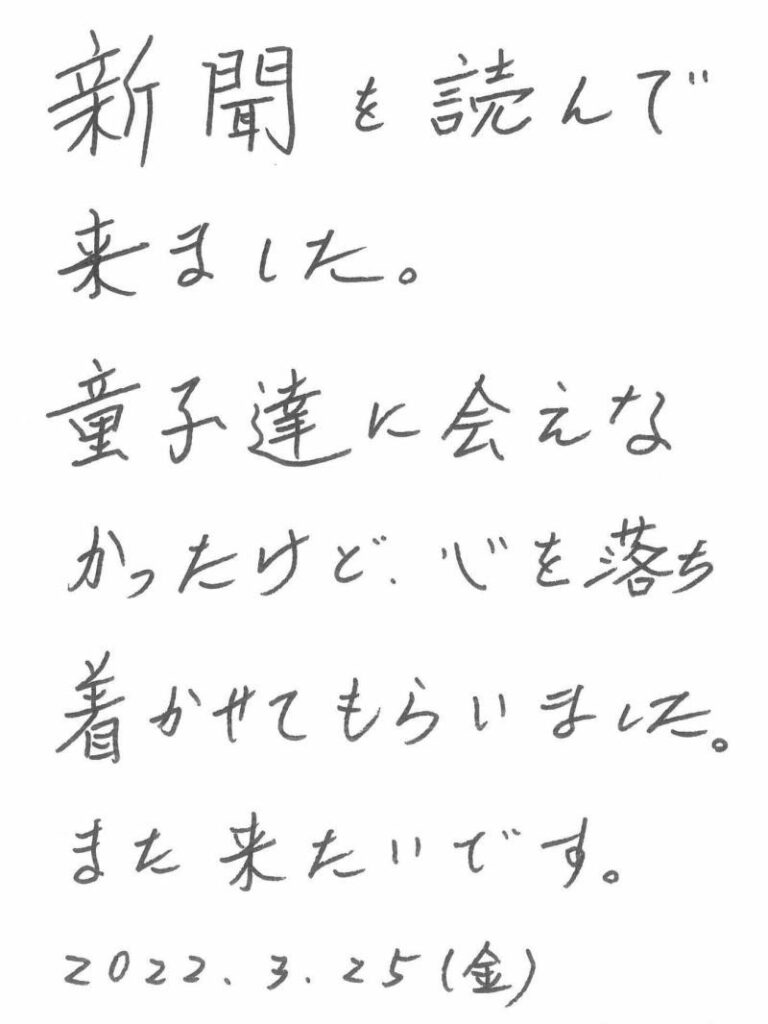 新聞を読んで
来ました。
童子達に会えな
かったけど、心を落ち
着かせてもらいました。
また来たいです。
2022.3.25(金)